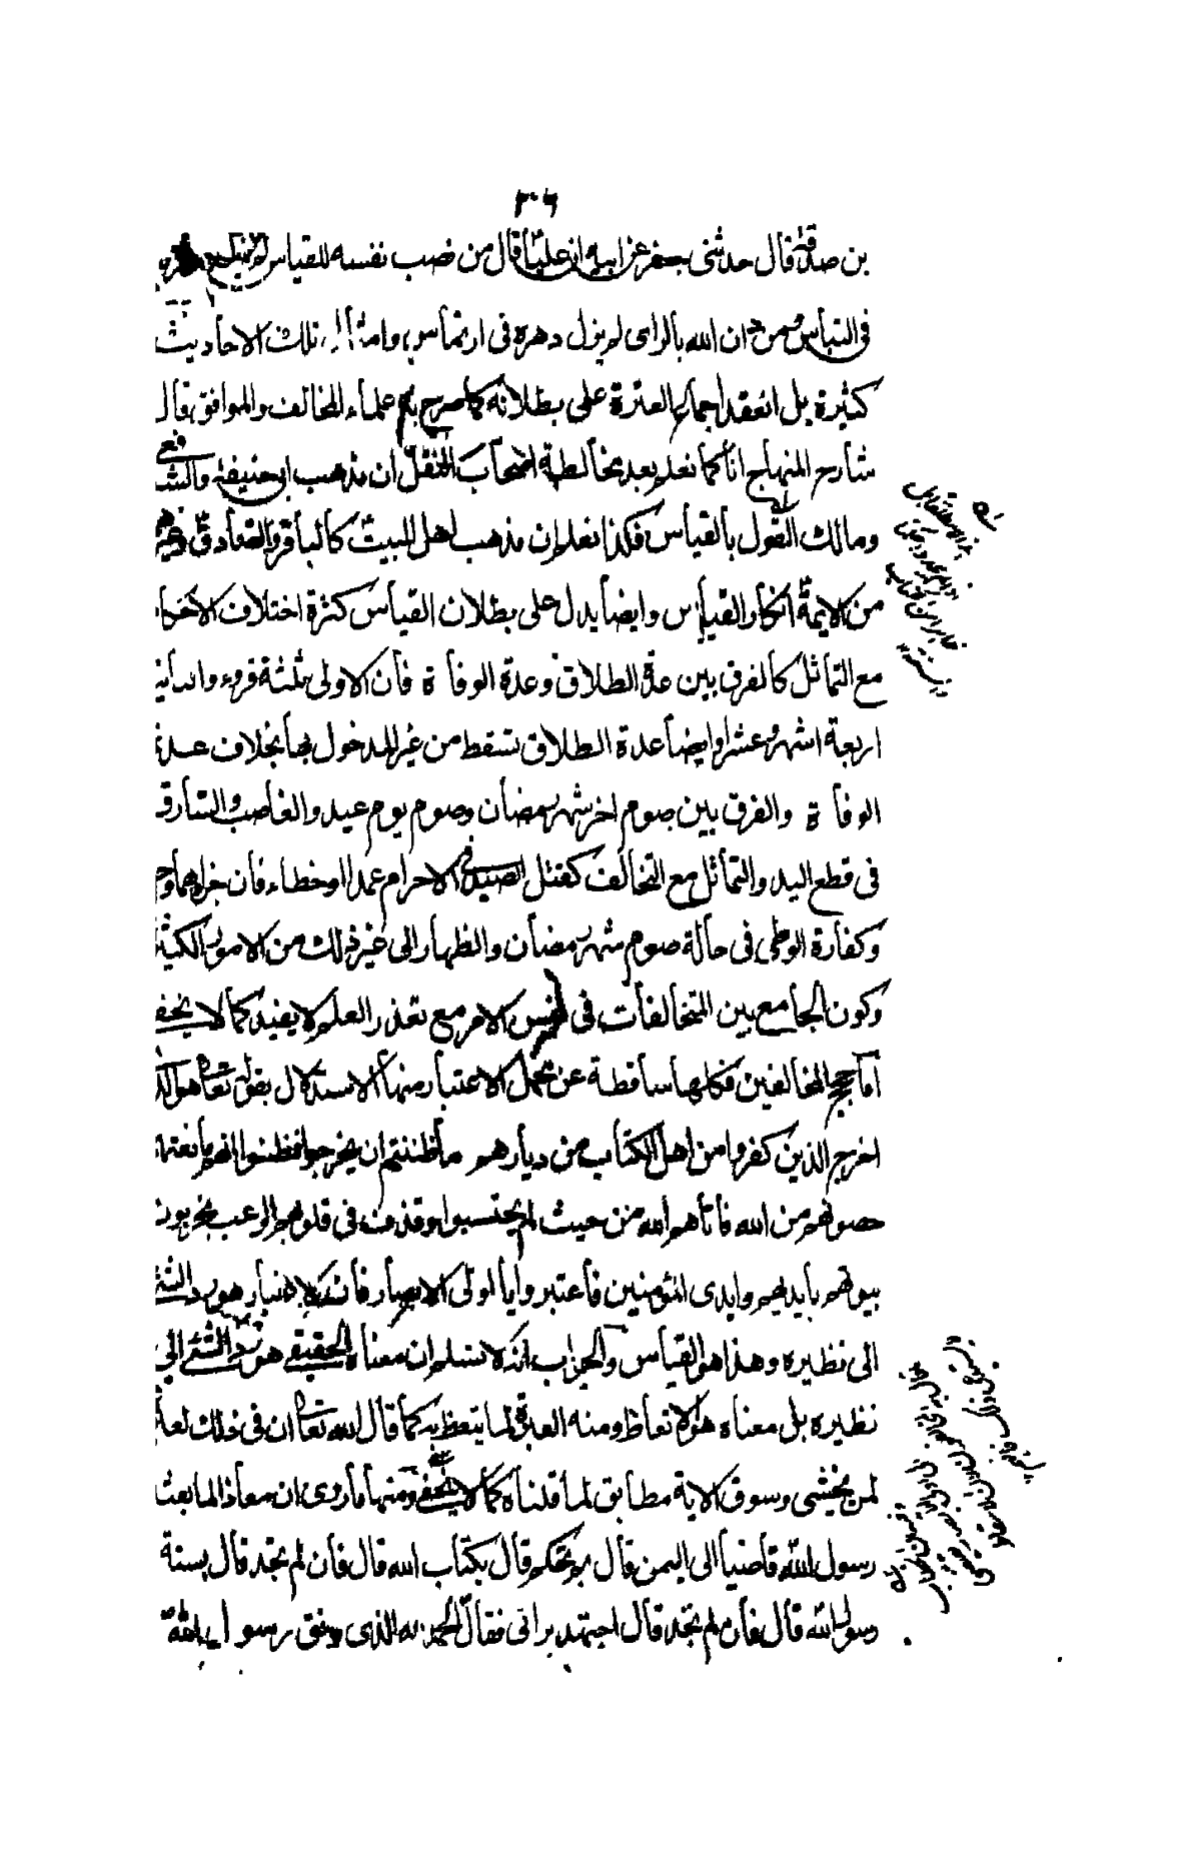 ٣٠٦
بن صدقة قال حدثنى جعفر عن ابيه ان عليا قال من نصب نفسه للقياس لم يزل دهره
فى التباس ومن دان الله بالراى لم يزل دهره فى ارتماس وامثال تلك الاحاديث
كثيرة بل انعقد اجماع العترة على بطلانه كما صرح به علماء المخالف والموافق قال
شارح المنهاج انا كما نعلم بعد مخالطة اصحاب النقل ان مذهب ابى حنيفة والشافعى
ومالك القول بالقياس فكذا نعلم ان مذهب اهل البيت كالباقر والصادق وغيرهم
من الايمة انكار القياس وايضا يدل على بطلان القياس كثرة اختلاف الاحكام
مع التماثل كالفرق بين عدة الطلاق وعدة الوفاة فان الاولى ثلثة قروء والثانية
اربعة اشهر وعشرا وايضا عدة الطلاق تسقط من غير المدخول بها بخلاف عدة
الوفاة والفرق بين صوم اخر شهر رمضان وصوم يوم عيد والغاصب والسارق
فى قطع اليد والتماثل مع التخالف كقتل الصيد فى الاحرام عمدا او خطاء فان جزاهما واحد
وكفارة الوطى فى حالة صوم شهر رمضان والظهار الى غير ذلك من الامور الكثيرة
وكون الجامع بين المتخالفات فى نفس الامر مع تعذر العلم لا يفيد كما لا يخفى
اما حجج المخالفين فكلها ساقطة عن محل الاعتبار منها الاستدلال بقوله تعالى هو الذى
اخرج الذين كفروا من اهل الكتاب من ديارهم ما ظننتم ان يخرجوا فظنوا انهم مانعتهم
حصونهم من الله فاتاهم الله من حيث لم يحتسبوا وقذف فى قلوبهم الرعب يخربون
بيوتهم بايديهم وايدى المؤمنين فاعتبروا يا اولى الابصار فان الاعتبار هو رد الشئ
الى نظيره وهذا هو القياس والجواب انه لا نسلم ان معناه الحقيقى هو رد الشئ الى
نظيره بل معناه هو الاتعاظ ومنه العبرة لما يتعظ به كما قال الله تعالى ان فى ذلك لعبرة
لمن يخشى وسوق الاية مطابق لما قلناه كما لا يخفى ومنها ما روى ان معاذا لما بعثه
رسول الله قاضيا الى اليمن قال بم تحكم قال بكتاب الله قال فان لم تجد قال بسنة
رسول الله قال فان لم تجد قال اجتهد برائى فقال الحمد لله الذى وفق رسول رسول الله